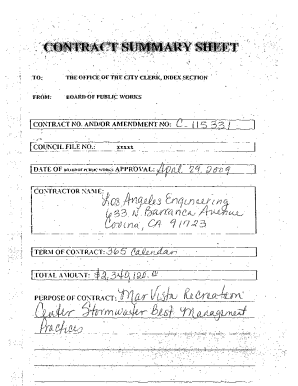 CONTRACT SUMMARY SHEET
TO: THE OFFICE OF THE CITY CLERK, INDEX SECTION
FROM: BOARD OF PUBLIC WORKS
CONTRACT NO. AND/OR AMENDMENT NO: C-115331
COUNCIL FILE NO.: xxxxx
DATE OF BOARD OF PUBLIC WORKS APPROVAL: April 29, 2009
CONTRACTOR NAME:
Los Angeles Engineering
633 N Barranca Avenue
Covina, CA 91723
TERM OF CONTRACT: 365 Calendar
TOTAL AMOUNT: $2,340,120.
PURPOSE OF CONTRACT: Mar Vista Recreation
Center Stormwater Best Management
Practices